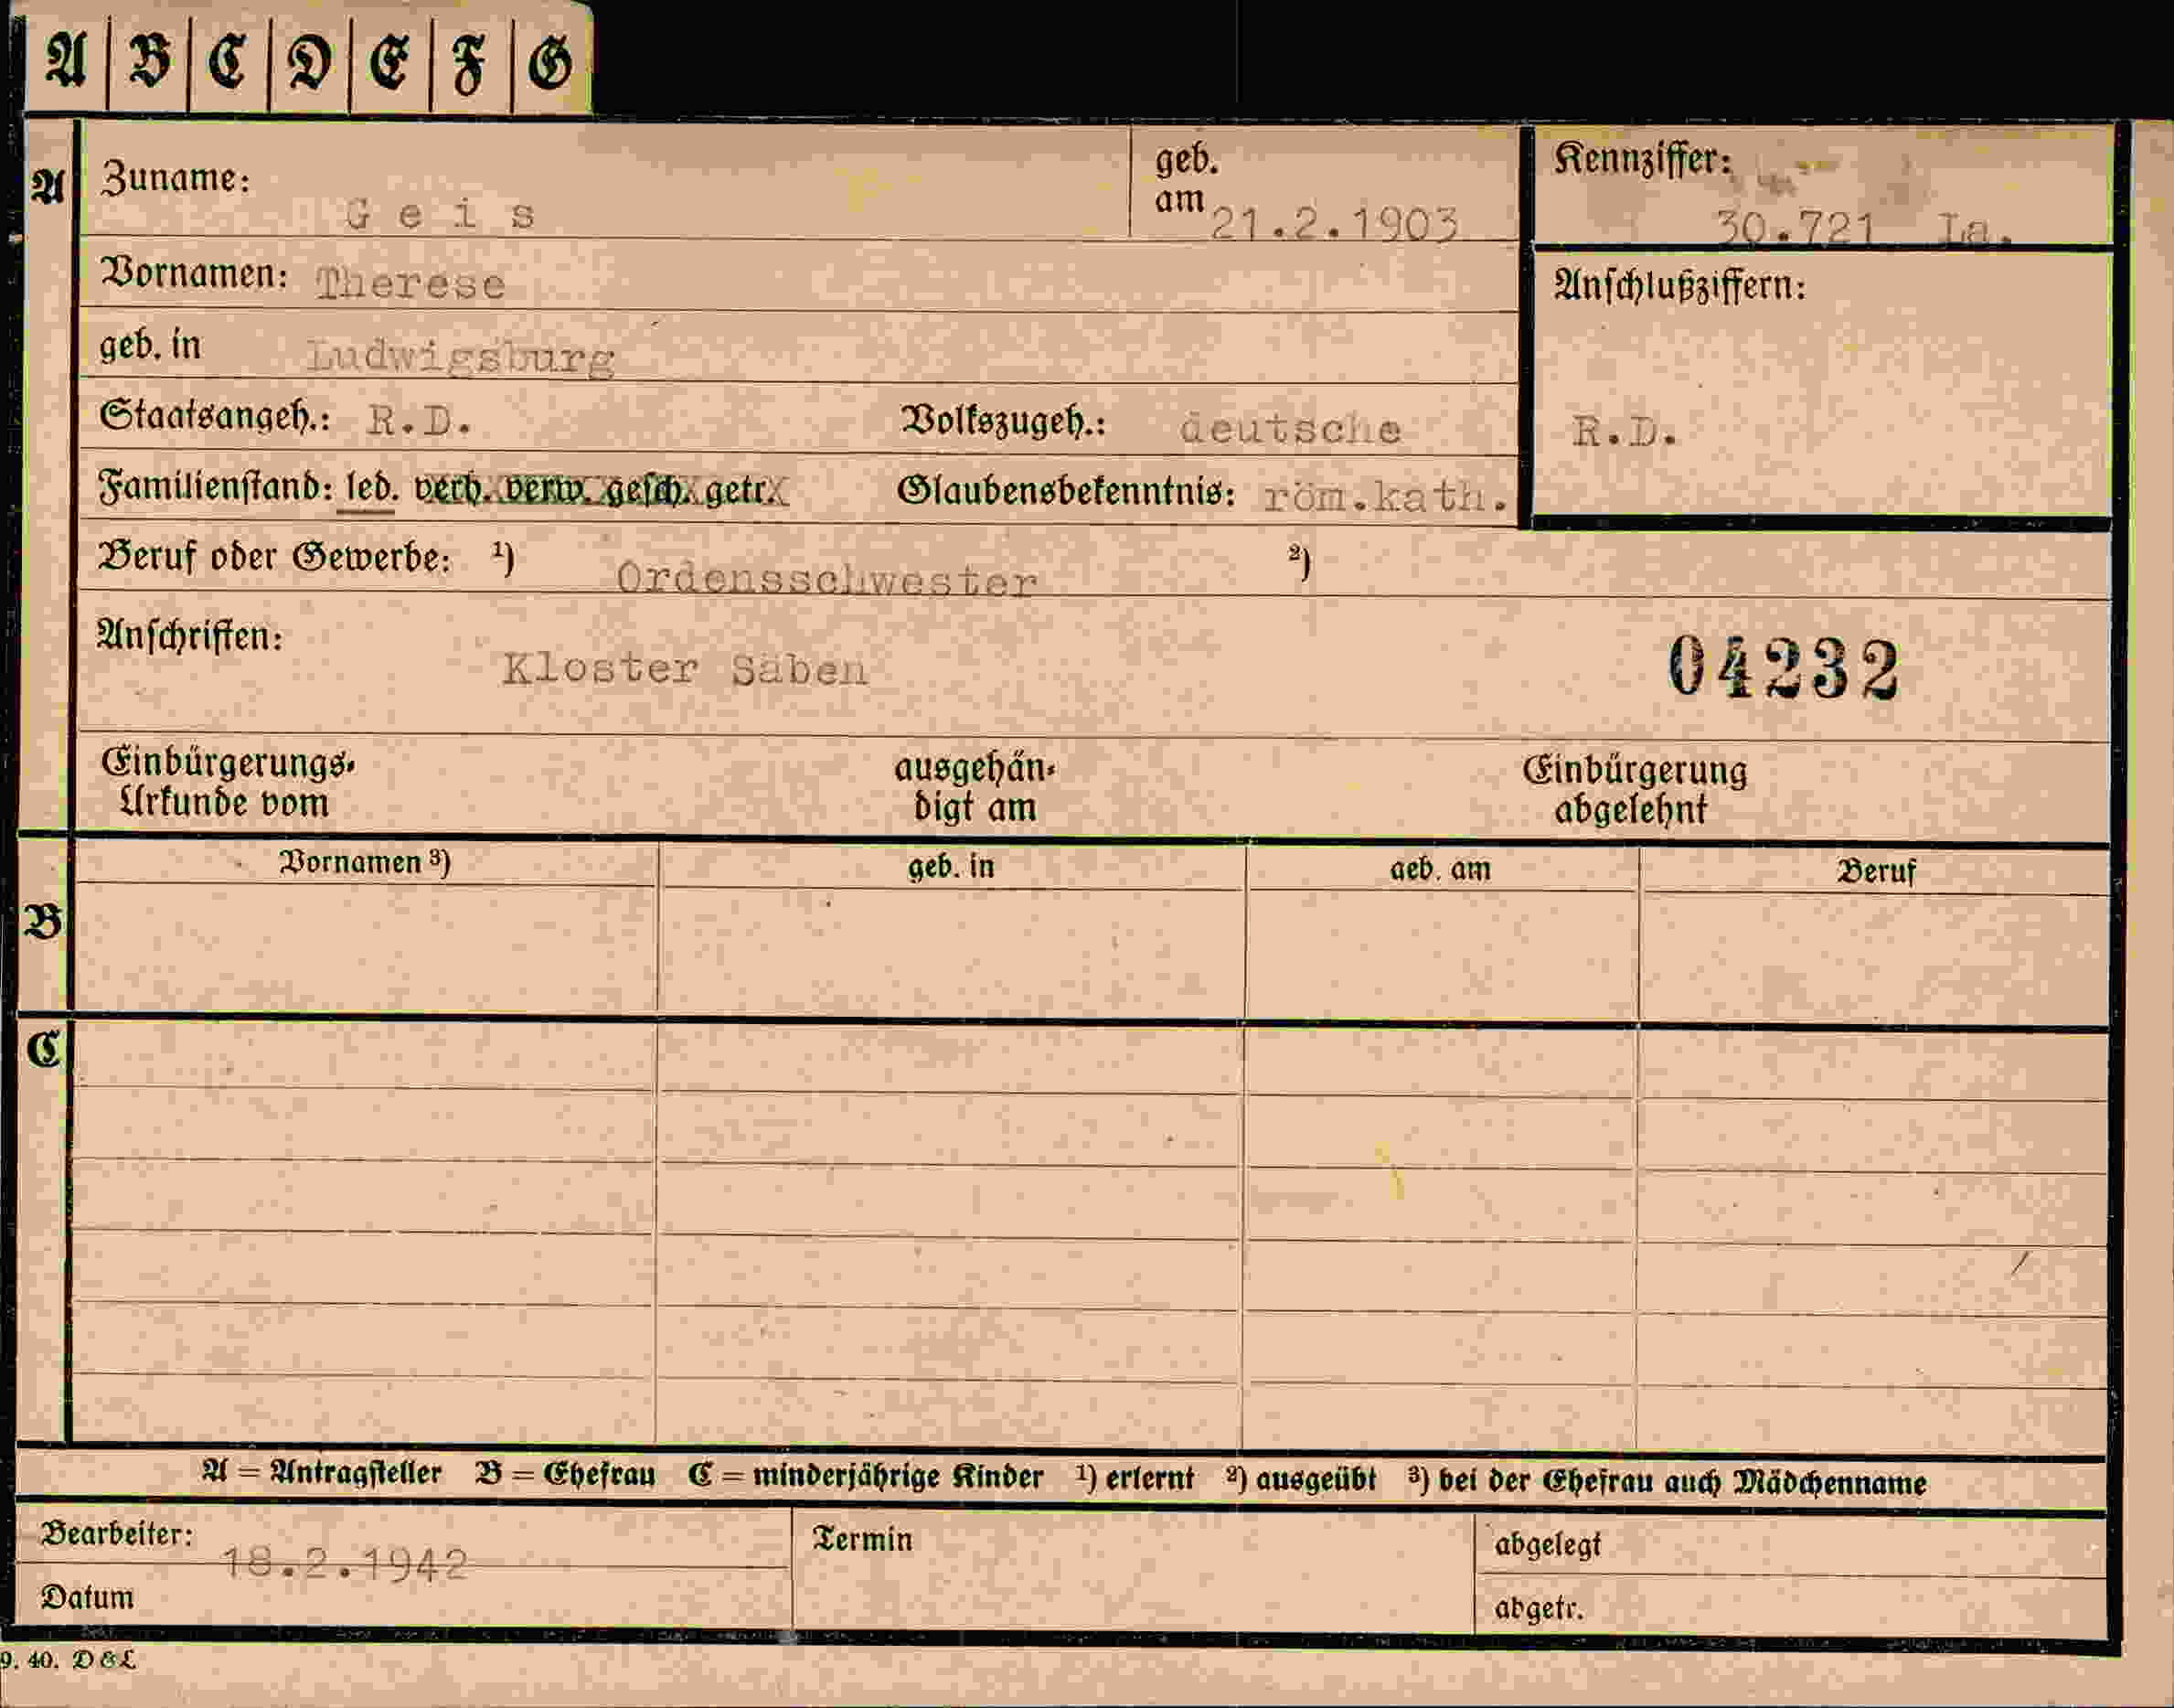 A B C D E F G
A Zuname: Geis geb. am 21.2.1903 Kennziffer: 30.721 Ia.
Vornamen: Therese Anschlußziffern:
geb. in Ludwigsburg
Staatsangeh.: R.D. Volkszugeh.: deutsche R.D.
Familienstand: led. verh. verw. gesch. getr. Glaubensbekenntnis: röm.kath.
Beruf oder Gewerbe: ¹) Ordensschwester ²)
Anschriften: Kloster Säben 04232
Einbürgerungs- ausgehän- Einbürgerung
Urkunde vom digt am abgelehnt
Vornamen ³) geb. in geb. am Beruf
B
C
A = Antragsteller B = Ehefrau C = minderjährige Kinder ¹) erlernt ²) ausgeübt ³) bei der Ehefrau auch Mädchenname
Bearbeiter: 18.2.1942 Termin abgelegt
Datum abgetr.
9. 40. D & L